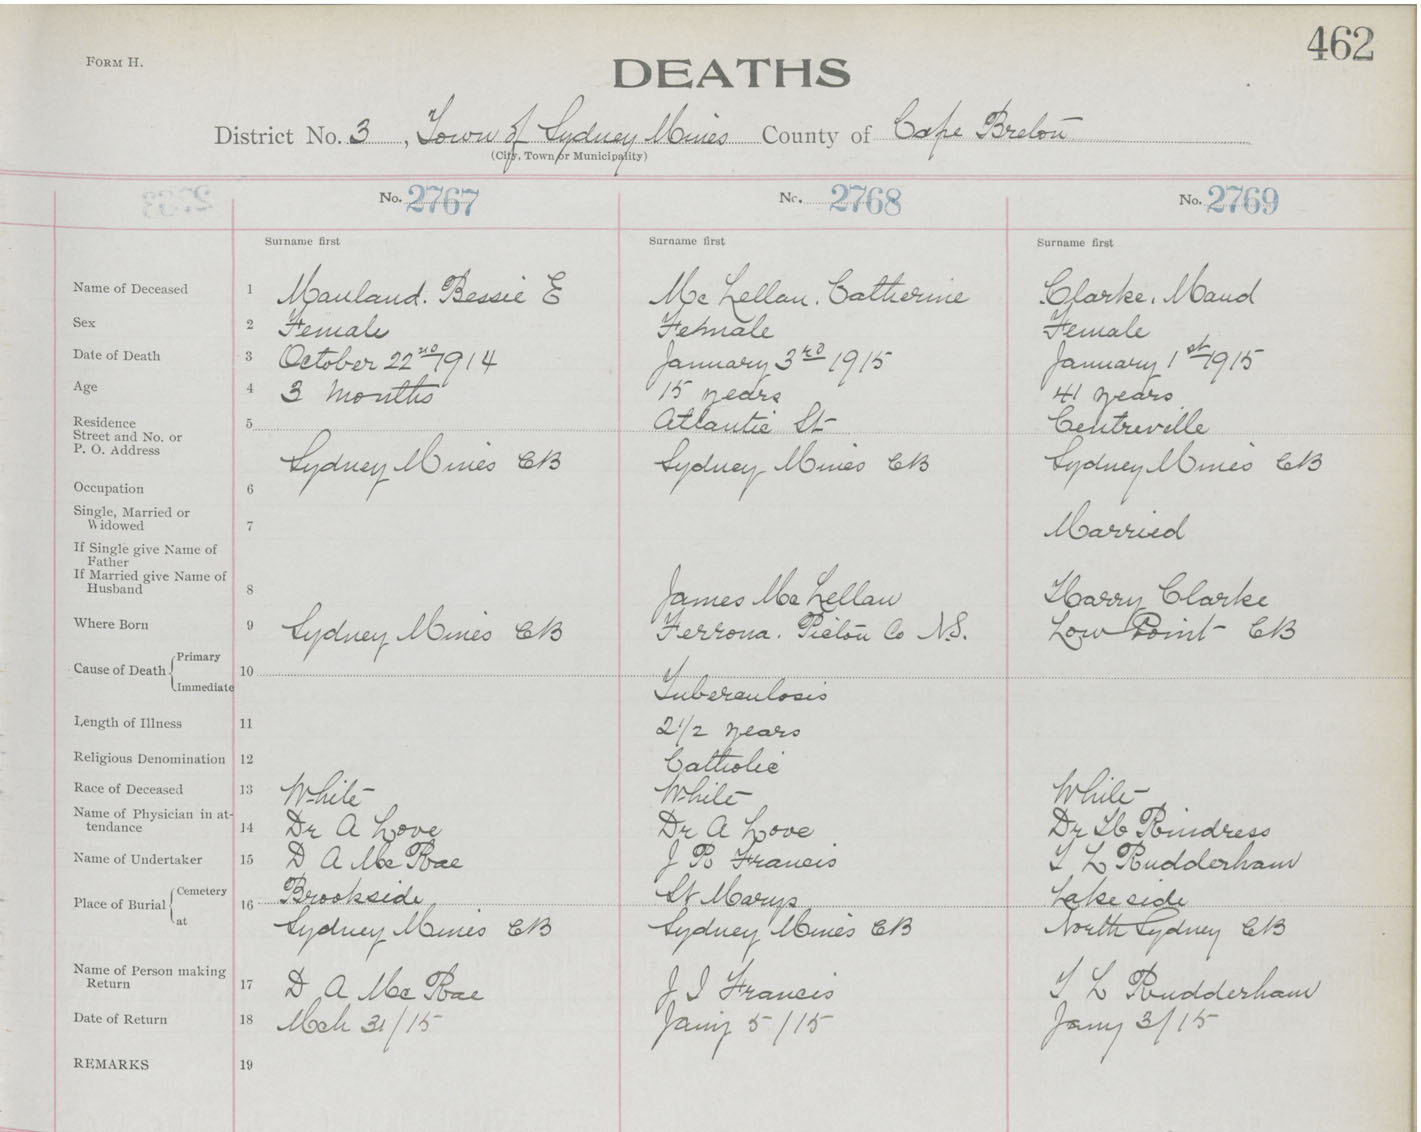 462
FORM H.
DEATHS
District No. 3, Town of Sydney Mines County of Cape Breton
(City, Town or Municipality)
No. 2767 No. 2768 No. 2769
Surname first Surname first Surname first
Name of Deceased 1 Manland. Bessie E Mc Lellan. Catherine Clarke. Maud
Sex 2 Female Female Female
Date of Death 3 October 22nd 1914 January 3rd 1915 January 1st 1915
Age 4 3 months 15 years 41 years
Residence 5 Atlantic St Centreville
Street and No. or
P. O. Address Sydney Mines CB Sydney Mines CB Sydney Mines CB
Occupation 6
Single, Married or
Widowed 7 Married
If Single give Name of
Father
If Married give Name of
Husband 8 James Mc Lellan Harry Clarke
Where Born 9 Sydney Mines CB Ferrona. Pictou Co N.S. Low Point CB
Primary
Cause of Death 10
Immediate Tuberculosis
Length of Illness 11 2 1/2 years
Religious Denomination 12 Catholic
Race of Deceased 13 White White White
Name of Physician in at-
tendance 14 Dr A Love Dr A Love Dr
Name of Undertaker 15 D A Mc Rae J R Francis T L Rudderham
Cemetery Brookside St Marys Lakeside
Place of Burial 16
at Sydney Mines CB Sydney Mines CB North Sydney CB
Name of Person making
Return 17 D A Mc Rae J J Francis T L Rudderham
Date of Return 18 Mch 31/15 Jany 5/15 Jany 3/15
REMARKS 19